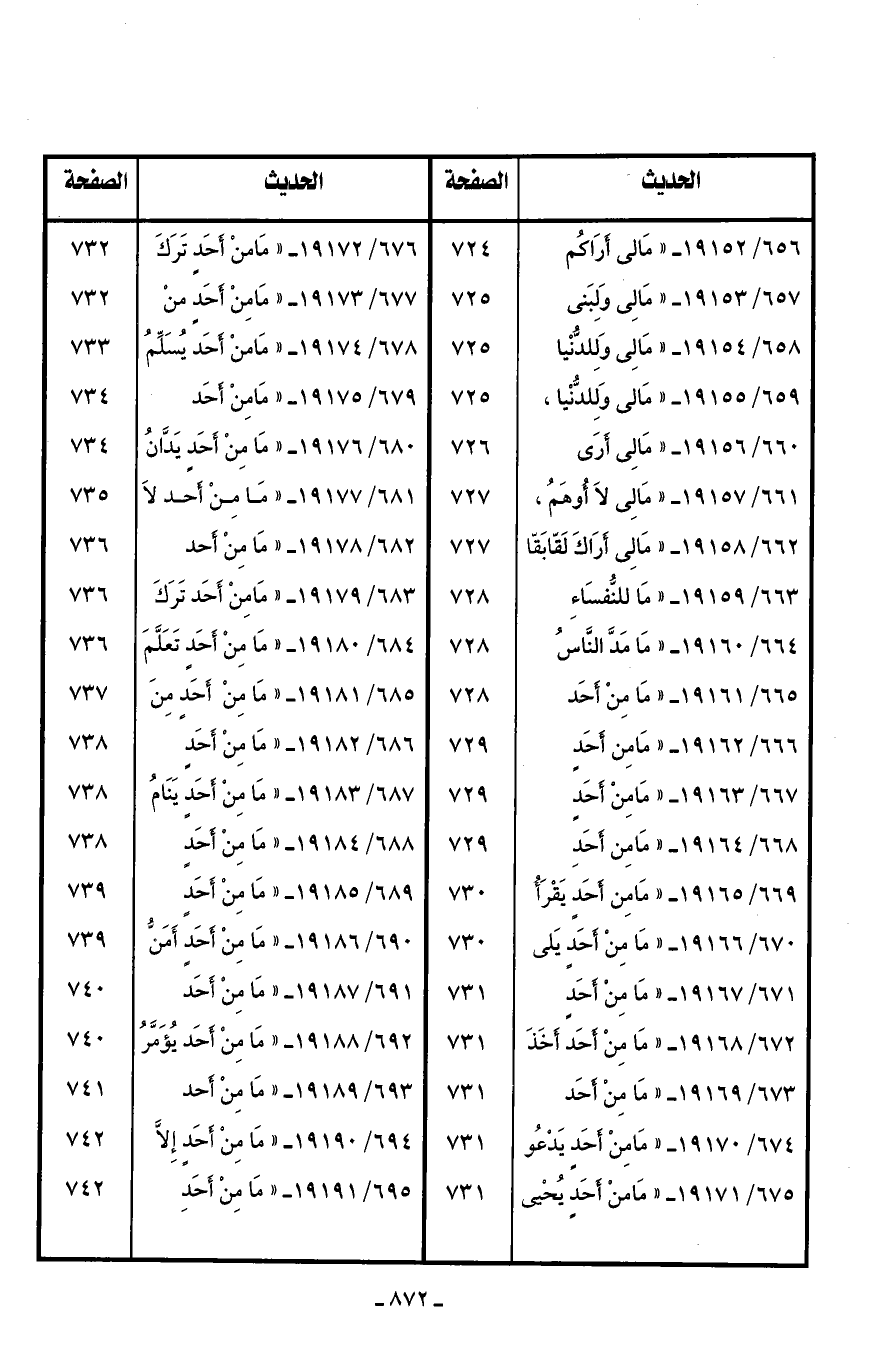 الحديث الصفحة الحديث الصفحة
٦٥٦/ ١٩١٥٢ـ « مَالى أَرَاكُم ٧٢٤ ٦٧٦/ ١٩١٧٢ـ « مَامِنْ أَحَدٍ تَرَكَ ٧٣٢
٦٥٧/ ١٩١٥٣ـ « مَالِى وَلِبَنى ٧٢٥ ٦٧٧/ ١٩١٧٣ـ « مَامِنْ أَحَدٍ منْ ٧٣٢
٦٥٨/ ١٩١٥٤ـ « مَالِى وَلِلدُّنْيا ٧٢٥ ٦٧٨/ ١٩١٧٤ـ « مَامِنْ أَحَد يُسَلِّمُ ٧٣٣
٦٥٩/ ١٩١٥٥ـ « مَالى وَلِلدُّنْيا ، ٧٢٥ ٦٧٩/ ١٩١٧٥ـ « مَامِنْ أَحَد ٧٣٤
٦٦٠/ ١٩١٥٦ـ « مَالى أَرَى ٧٢٦ ٦٨٠/ ١٩١٧٦ـ « مَا مِنْ أَحَدٍ يَدَّانُ ٧٣٤
٦٦١/ ١٩١٥٧ـ « مَالِى لاَ أُوهَمُ ، ٧٢٧ ٦٨١/ ١٩١٧٧ـ « مَـا مِـنْ أحـد لاَ ٧٣٥
٦٦٢/ ١٩١٥٨ـ « مَالِى أَرَاكَ لَقّابَقّا ٧٢٧ ٦٨٢/ ١٩١٧٨ـ « مَا مِنْ أَحد ٧٣٦
٦٦٣/ ١٩١٥٩ـ « مَا للنُّفسَاءِ ٧٢٨ ٦٨٣/ ١٩١٧٩ـ « مَامِنْ أَحَد تَرَكَ ٧٣٦
٦٦٤/ ١٩١٦٠ـ « مَا مَدَّ النَّاسُ ٧٢٨ ٦٨٤/ ١٩١٨٠ـ « مَا مِنْ أَحَدٍ تَعَلَّمَ ٧٣٦
٦٦٥/ ١٩١٦١ـ « مَا مِنْ أَحَد ٧٢٨ ٦٨٥/ ١٩١٨١ـ « مَا مِنْ أَحَدٍ مِنَ ٧٣٧
٦٦٦/ ١٩١٦٢ـ « مَامِن أَحَدٍ ٧٢٩ ٦٨٦/ ١٩١٨٢ـ « مَا مِنْ أَحَدٍ ٧٣٨
٦٦٧/ ١٩١٦٣ـ « مَامِنْ أَحَدٍ ٧٢٩ ٦٨٧/ ١٩١٨٣ـ « مَا مِنْ أَحَدٍ يَنَامُ ٧٣٨
٦٦٨/ ١٩١٦٤ـ « مَامِن أَحَدِ ٧٢٩ ٦٨٨/ ١٩١٨٤ـ « مَا مِنْ أَحَدٍ ٧٣٨
٦٦٩/ ١٩١٦٥ـ « مَامِن أَحَدٍ يَقْرَأُ ٧٣٠ ٦٨٩/ ١٩١٨٥ـ « مَا مِنْ أَحَدٍ ٧٣٩
٦٧٠/ ١٩١٦٦ـ « مَا مِنْ أَحَدٍ يَلى ٧٣٠ ٦٩٠/ ١٩١٨٦ـ « مَا مِنْ أَحَدٍ أَمَنُّ ٧٣٩
٦٧١/ ١٩١٦٧ـ « مَا مِنْ أَحَدٍ ٧٣١ ٦٩١/ ١٩١٨٧ـ « مَا مِنْ أَحَد ٧٤٠
٦٧٢/ ١٩١٦٨ـ « مَا مِنْ أَحَد أَخَذَ ٧٣١ ٦٩٢/ ١٩١٨٨ـ « مَا مِنْ أَحَد يُؤَمَّرُ ٧٤٠
٦٧٣/ ١٩١٦٩ـ « مَا مِنْ أَحَد ٧٣١ ٦٩٣/ ١٩١٨٩ـ « مَا مِنْ أَحد ٧٤١
٦٧٤/ ١٩١٧٠ـ « مَامِنْ أَحَدٍ يَدْعُو ٧٣١ ٦٩٤/ ١٩١٩٠ـ « مَا مِنْ أَحَدٍ إِلاَّ ٧٤٢
٦٧٥/ ١٩١٧١ـ « مَامِنْ أَحَدٍ يُحْيى ٧٣١ ٦٩٥/ ١٩١٩١ـ « مَا مِنْ أَحَدِ ٧٤٢
ـ ٨٧٢ ـ